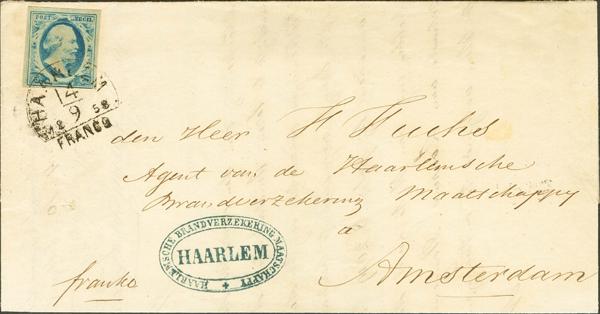 POST ZEGEL
HAARLEM
14
9
1858
FRANCO
den Heer H Fuchs
Agent van de Haarlemsche
Brandverzekering Maatschappy
à
Amsterdam
HAARLEMSCHE BRANDVERZEKERING MAATSCHAPPY
HAARLEM
franko